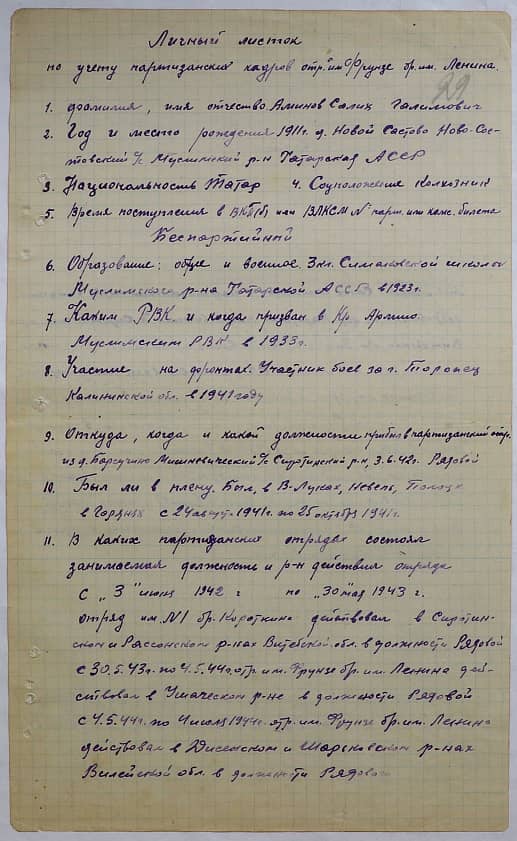 Личный листок
по учету партизанских кадров отр. им Фрунзе бр. им. Ленина.
29
1. фамилия, имя отчество Аминов Салих Галимович
2. Год и место рождения 1911г. д. Новой Састово Ново-Сас-
товский с/с Муслимский р-н Татарская АССР
3. Национальность Татар 4. Соцположение Колхозник
5. Время поступления в ВКП(б) или ВЛКСМ N парт. или комс. билета
Беспартийный
6. Образование: общее и военное 3кл. школы
Муслимского р-на Татарской АССР в 1923г.
7. Каким РВК и когда призван в Кр Армию
Муслимским РВК в 1933г.
8. Участие на фронтах. Участник боев за г. Торопец
Калининской обл. в 1941 году
9. Откуда, когда и какой должности прибыл в партизанский отр.
из д. с/с Сиротинский р-н, 3.6.42г. Рядовой
10. Был ли в плену. Был, в В-Луках, Невель, Полоцк
с 24 август 1941г. по 25 октябрь 1941г.
11. В каких партизанских отрядах состоял
занимаемая должность и р-н действия отряда
с „3" 1942 г по „30" мая 1943 г.
отряд им. N1 бр. Короткина действовал в Сиротин-
ском и Россонском р-нах Витебской обл. в должности Рядовой
с 30.5.43г. по 4.5.44г. отр. им. Фрунзе бр. им. Ленина дей-
ствовал в Ушачском р-не в должности Рядовой
с 4.5.44г. по 4 июль 1944г. отр. им. Фрунзе бр. им. Ленина
действовал в Дисенском и Шарковском р-нах
Вилейской обл. в должности Рядового